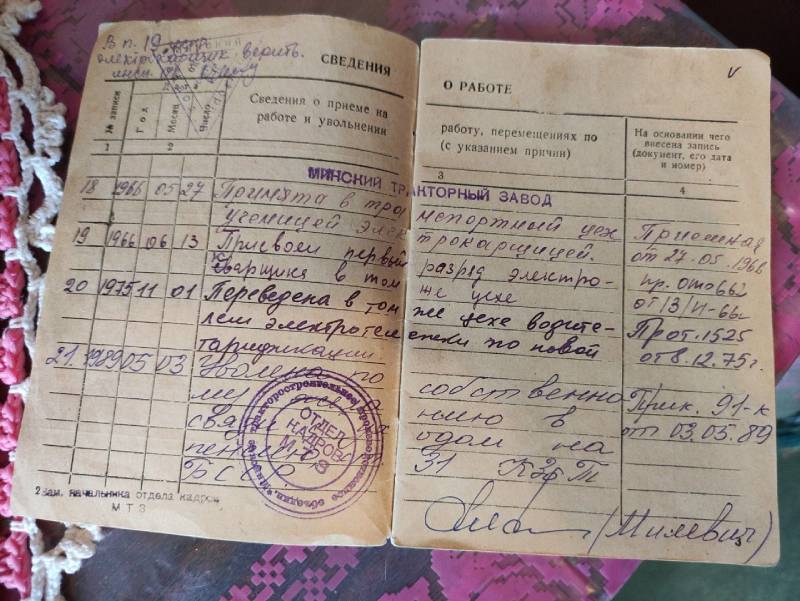 В п. 19
электрокарщик верить.
СВЕДЕНИЯ
О РАБОТЕ
№ записи
Год
Месяц
Число
Сведения о приеме на
работе и увольнении
работу, перемещениях по
(с указанием причин)
На основании чего
внесена запись
(документ, его дата
и номер)
1
2
3
4
МИНСКИЙ ТРАКТОРНЫЙ ЗАВОД
18 1966 05 27 Принята в транспортный цех
ученицей электрокарщицей.
от 27.05.1966
19 1966 06 13 Присвоен первый разряд электро-
сварщика в том же цехе
пр. ото 662
от 13/VI-66г
20 1975 11 01 Переведена в том же цехе водите-
лем электротележки по новой
тарификации.
Прот. 1525
от 8.12.75г.
21. 1989 05 03 Уволена по собственно
му
связи
пенсию
БССР
нию в
одом на
31 КЗоТ
Прик. 91-к
от 03.05.89
ОТДЕЛ
КАДРОВ
МТЗ
Зам. начальника отдела кадров
МТЗ
(Милевич)
2
3